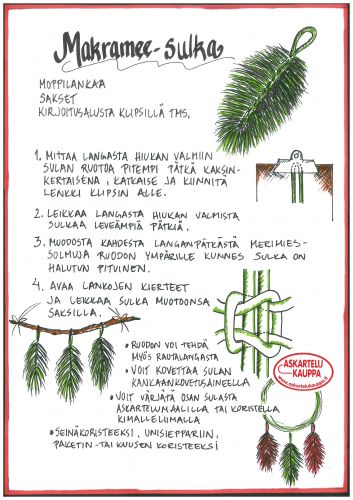 Makramee-sulka
MOPPILANKAA
SAKSET
KIRJOITUSALUSTA KLIPSILLÄ TMS.
1. MITTAA LANGASTA HIUKAN VALMIIN
SULAN RUOTOA PITEMPI PÄTKÄ KAKSIN-
KERTAISENA, KATKAISE JA KIINNITÄ
LENKKI KLIPSIN ALLE.
2. LEIKKAA LANGASTA HIUKAN VALMISTA
SULKAA LEVEÄMPIÄ PÄTKIÄ.
3. MUODOSTA KAHDESTA LANGANPÄTKÄSTÄ MERIMIES-
SOLMUJA RUODON YMPÄRILLE KUNNES SULKA ON
HALUTUN PITUINEN.
4. AVAA LANKOJEN KIERTEET
JA LEIKKAA SULKA MUOTOONSA
SAKSILLA.
• RUODON VOI TEHDÄ
MYÖS RAUTALANGASTA
• VOIT KOVETTAA SULAN
KANKAANKOVETUSAINEELLA
• VOIT VÄRJÄTÄ OSAN SULASTA
ASKARTELUMAALILLA TAI KORISTELLA
KIMALLELIIMALLA
• SEINÄKORISTEEKSI, UNISIEPPARIIN,
PAKETIN- TAI KUUSEN KORISTEEKSI
ASKARTELU
KAUPPA
www.askartelukauppa.fi